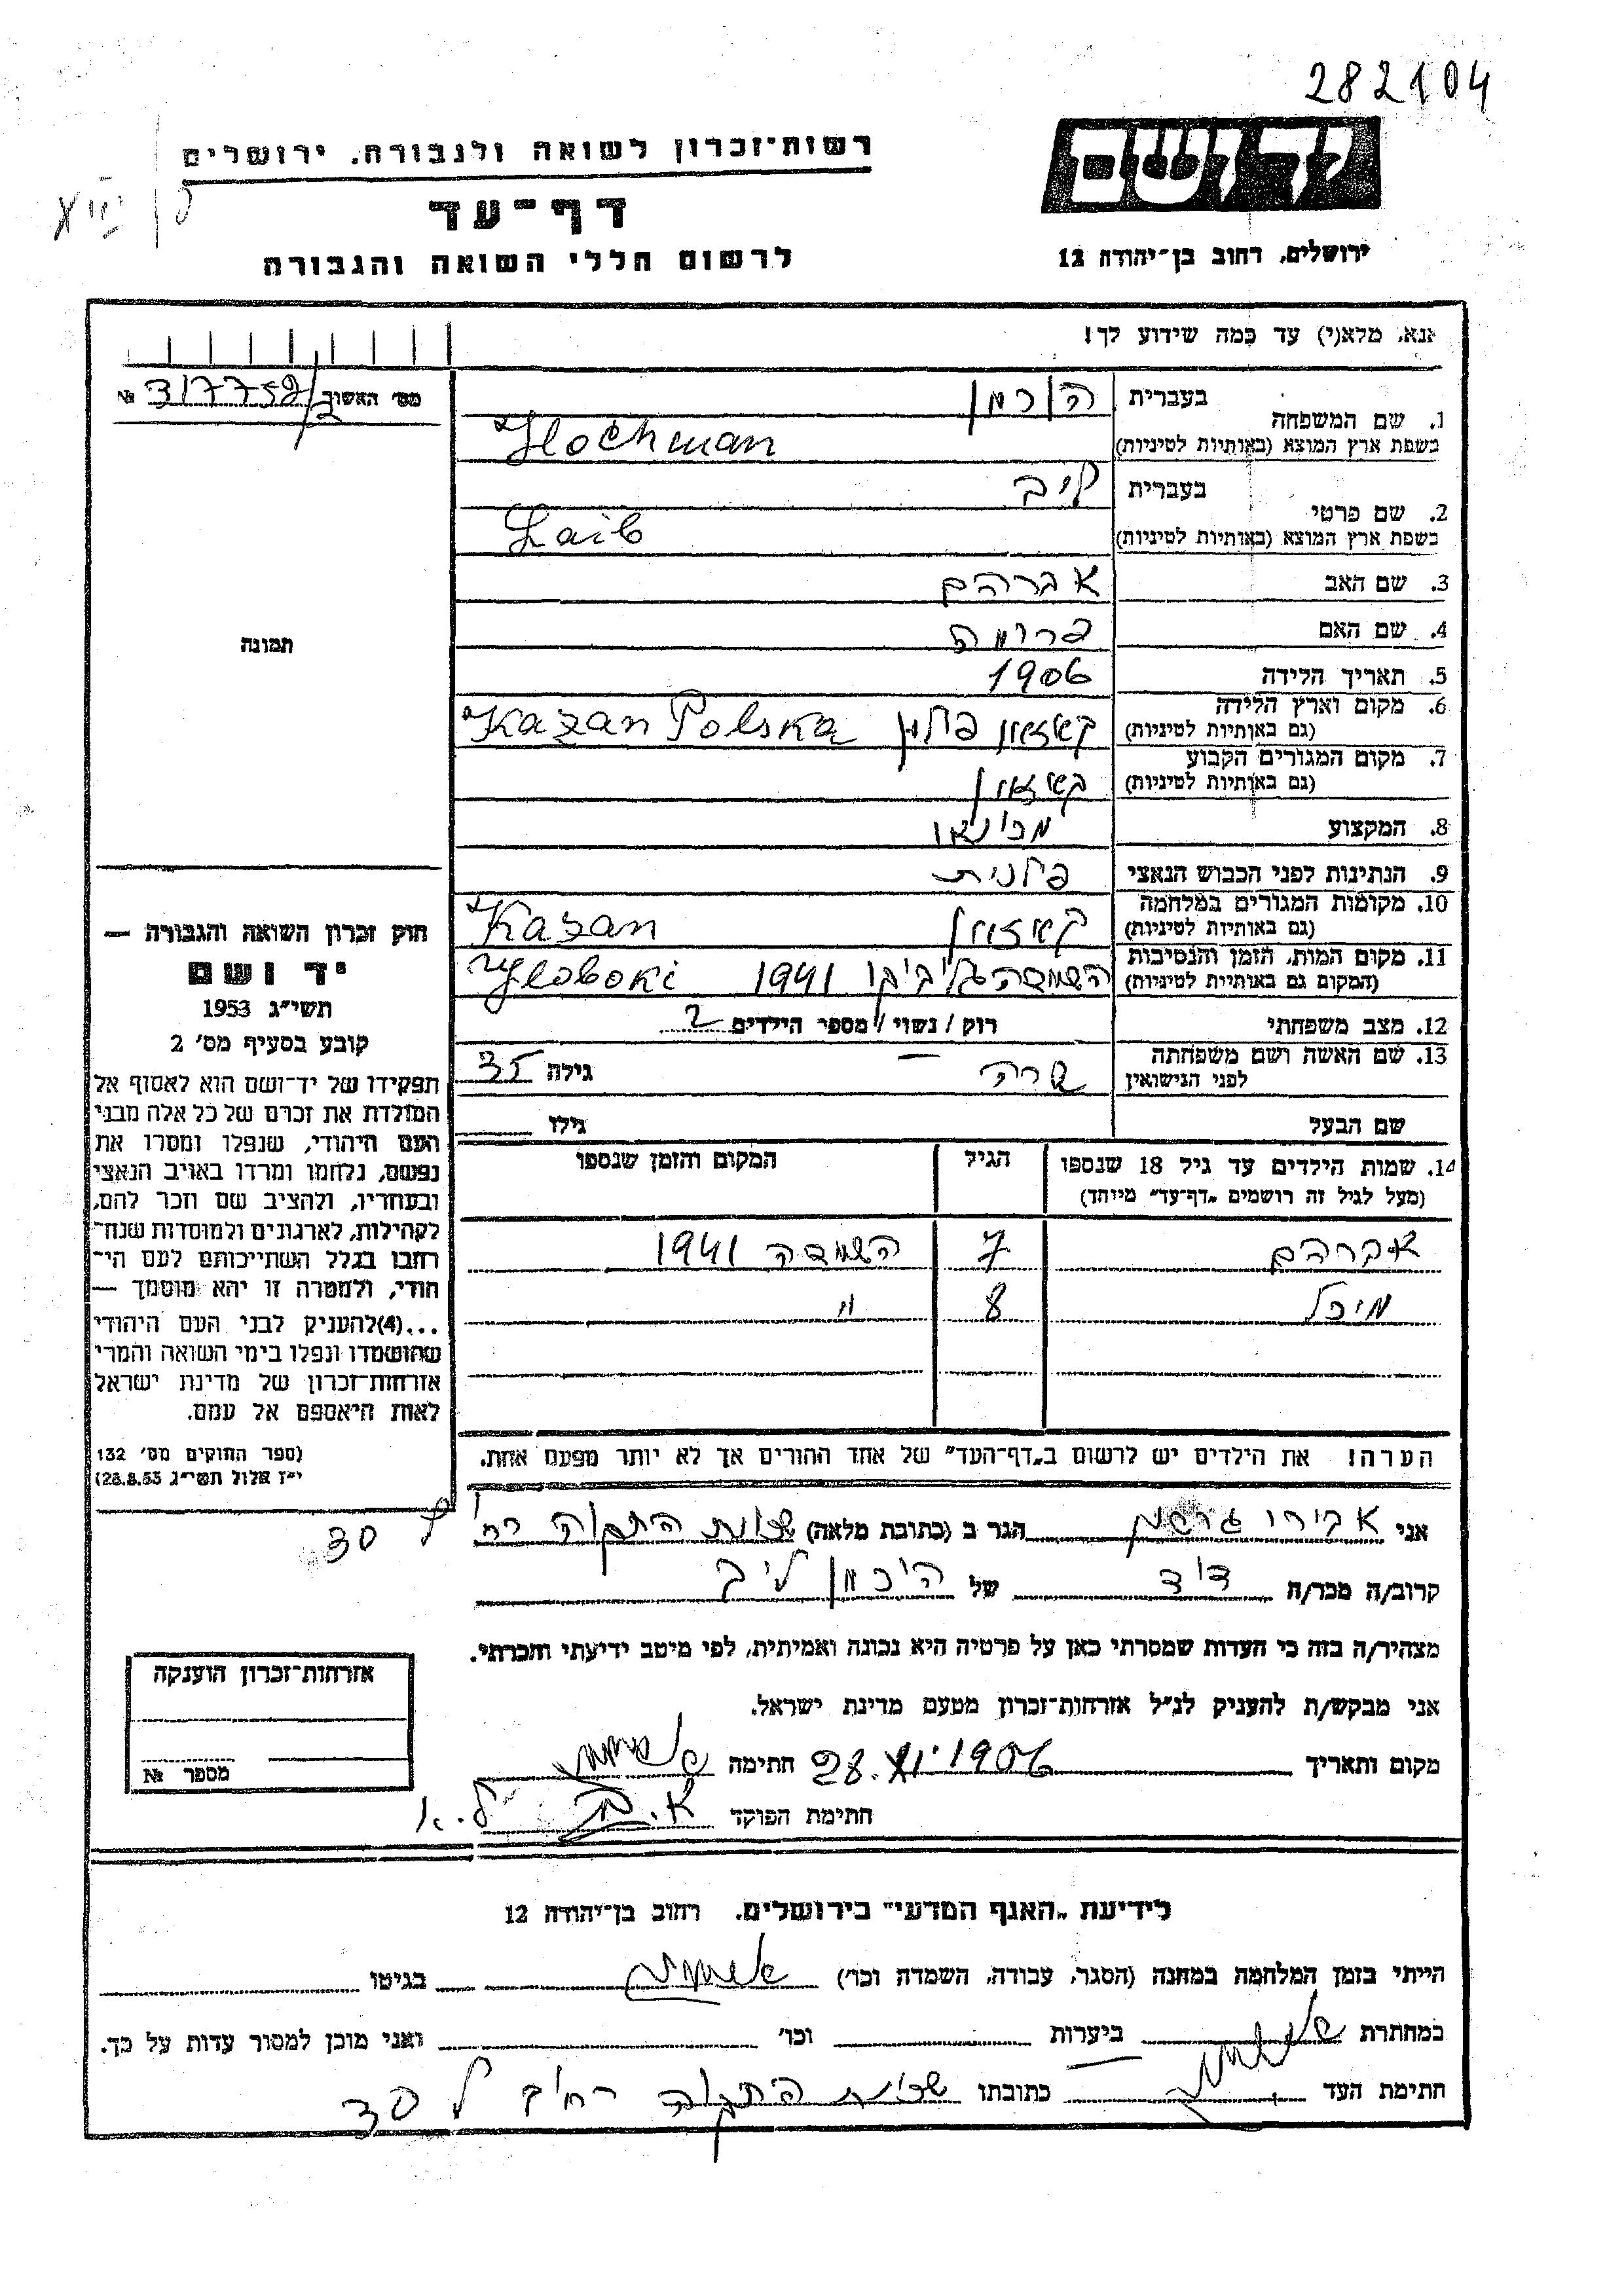 282104
רשות־זכרון לשואה ולגבורה, ירושלים
דף־עד
לרשום חללי השואה והגבורה
ירושלים, רחוב בן־יהודה 12
אנא, מלא(י) עד כמה שידוע לך!
מס׳ האשור № 317752/2
1. שם המשפחה
בעברית הוכמן
בשפת ארץ המוצא (באותיות לטיניות) Hochman
2. שם פרטי
בעברית ליב
בשפת ארץ המוצא (באותיות לטיניות) Laib
3. שם האב אברהם
4. שם האם פרומה
5. תאריך הלידה 1906
6. מקום וארץ הלידה
(גם באותיות לטיניות) קאזאן פולין Kazan Polska
7. מקום המגורים הקבוע
(גם באותיות לטיניות) קאזאן
8. המקצוע
9. הנתינות לפני הכבוש הנאצי פולנית
10. מקומות המגורים במלחמה
(גם באותיות לטיניות) קאזאן Kazan
11. מקום המות, הזמן והנסיבות
(המקום גם באותיית לטיניות) השמדה 1941 Hloboki
12. מצב משפחתי רוק / נשוי / מספר הילדים 2
13. שם האשה ושם משפחתה
לפני הנישואין שרה — גילה 35
שם הבעל גילו
14. שמות הילדים עד גיל 18 שנספו הגיל המקום והזמן שנספו
(מעל לגיל זה רושמים „דף־עד״ מיוחד)
אברהם 7 השמדה 1941
מיכל 8 "
הערה! את הילדים יש לרשום ב„דף־העד״ של אחד ההורים אך לא יותר מפעם אחת.
תמונה
חוק זכרון השואה והגבורה —
יד ושם
תשי״ג 1953
קובע בסעיף מס׳ 2
תפקידו של יד־ושם הוא לאסוף אל
המולדת את זכרם של כל אלה מבני
העם היהודי, שנפלו ומסרו את
נפשם, נלחמו ומרדו באויב הנאצי
ובעוזריו, ולהציב שם וזכר להם,
לקהילות, לארגונים ולמוסדות שנח־
רבו בגלל השתייכותם לעם הי־
הודי, ולמטרה זו יהא מוסמך —
...(4)להעניק לבני העם היהודי
שהושמדו ונפלו בימי השואה והמרי
אזרחות־זכרון של מדינת ישראל
לאות היאספם אל עמם.
(ספר החוקים מס׳ 132
י״ז אלול תשי״ג 28.8.53)
אני הגר ב (כתובת מלאה) שכונת התקוה רח׳
ל 30
קרוב/ה מכר/ה דוד של הוכמן ליב
מצהיר/ה בזה כי העדות שמסרתי כאן על פרטיה היא נכונה ואמיתית, לפי מיטב ידיעתי והכרתי.
אני מבקש/ת להעניק לנ״ל אזרחות־זכרון מטעם מדינת ישראל.
מקום ותאריך 28.XI.1956 חתימה
חתימת הפוקד
אזרחות־זכרון הוענקה
מספר №
לידיעת „האגף המדעי״ בירושלים, רחוב בן־יהודה 12
הייתי בזמן המלחמה במחנה (הסגר, עבודה, השמדה וכו׳) בגיטו
במחתרת ביערות וכו׳ ואני מוכן למסור עדות על כך.
חתימת העד כתובתו שכונת התקוה רחוב ל 30